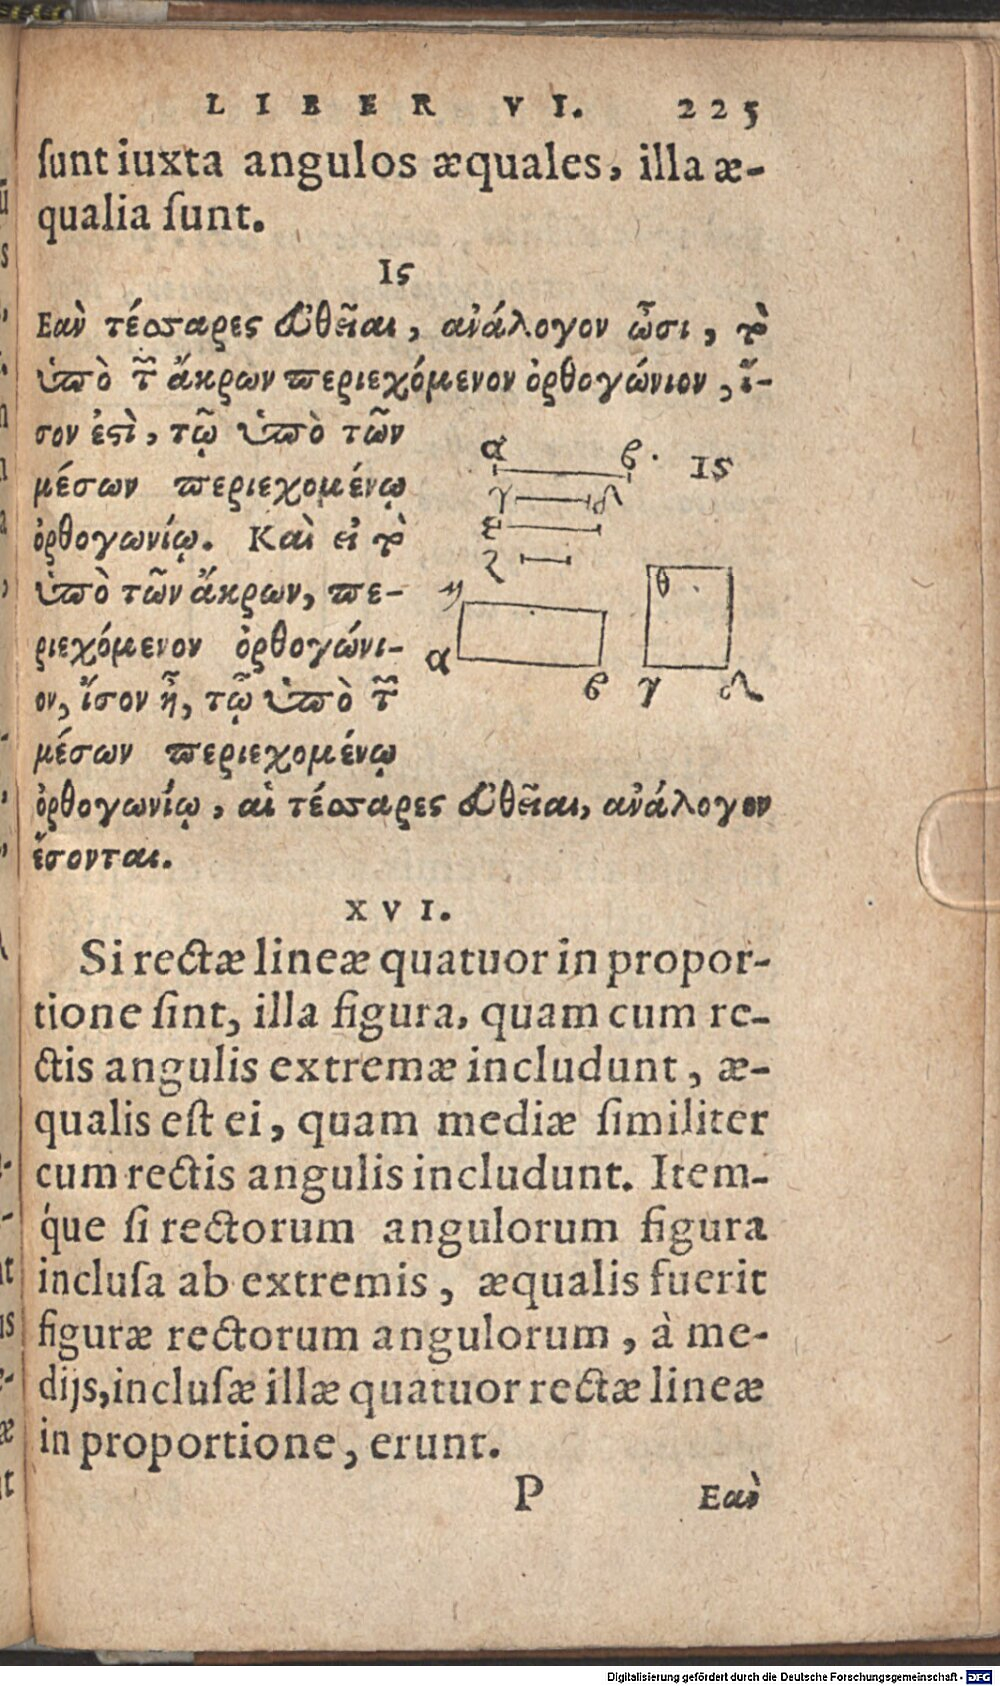 LIBER VI. 225
ſunt iuxta angulos æquales, illa æ-
qualia ſunt.
Ις
Εαὺ τέσσαρες εὐθεῖαι, ἀνάλογον ὦσι, τὸ
ὑπὸ τῶν ἄκρων περιεχόμενον ὀρθογώνιον, ἴ-
σον ἐστὶ, τῷ ὑπὸ τῶν
μέσων περιεχομένῳ
ὀρθογωνίῳ. Καὶ εἰ τὸ
ὑπὸ τῶν ἄκρων, πε-
ριεχόμενον ὀρθογώνι-
ον, ἴσον ᾖ, τῷ ὑπὸ τῶν
μέσων περιεχομένῳ
ὀρθογωνίῳ, αἱ τέσσαρες εὐθεῖαι, ἀνάλογον
ἔσονται.
α β. Ις
γ δ
ε
ζ
η θ
α β γ δ
XVI.
Si rectæ lineæ quatuor in propor-
tione ſint, illa figura, quam cum re-
ctis angulis extremæ includunt, æ-
qualis eſt ei, quam mediæ ſimiliter
cum rectis angulis includunt. Item-
q́ue ſi rectorum angulorum figura
incluſa ab extremis, æqualis fuerit
figuræ rectorum angulorum, à me-
dijs, incluſæ illæ quatuor rectæ lineæ
in proportione, erunt.
P Εαὺ
Digitalisierung gefördert durch die Deutsche Forschungsgemeinschaft - DFG